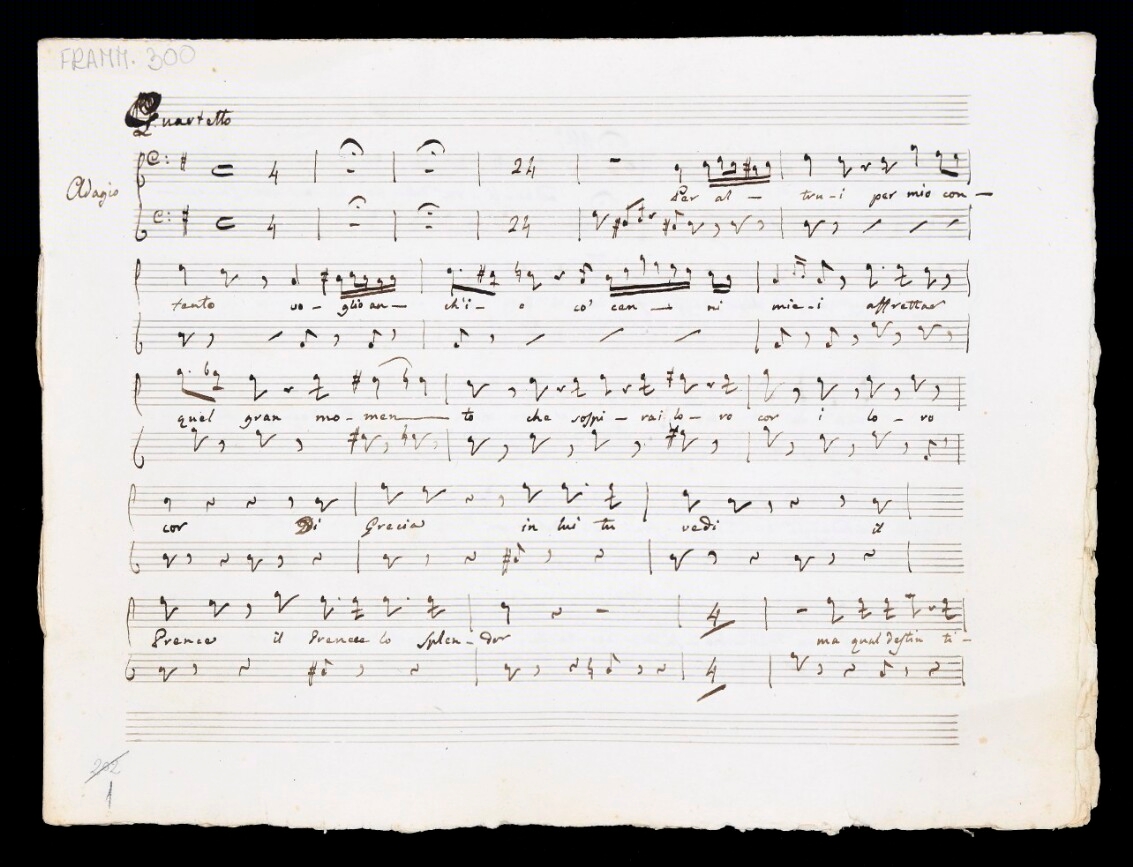 FRAMM. 300
Quartetto
Adagio
4 24
Per al - tru - i per mio con -
4 24
tento vo - glio an - ch'i - o co' cen - ni mie - i affrettar
quel gran mo - men to che sospi - rai lo - ro cor i lo - ro
cor Di Grecia in lui tu vedi il
Prence il Prence lo splen - dor ma qual destin ti -
4
4
202
1